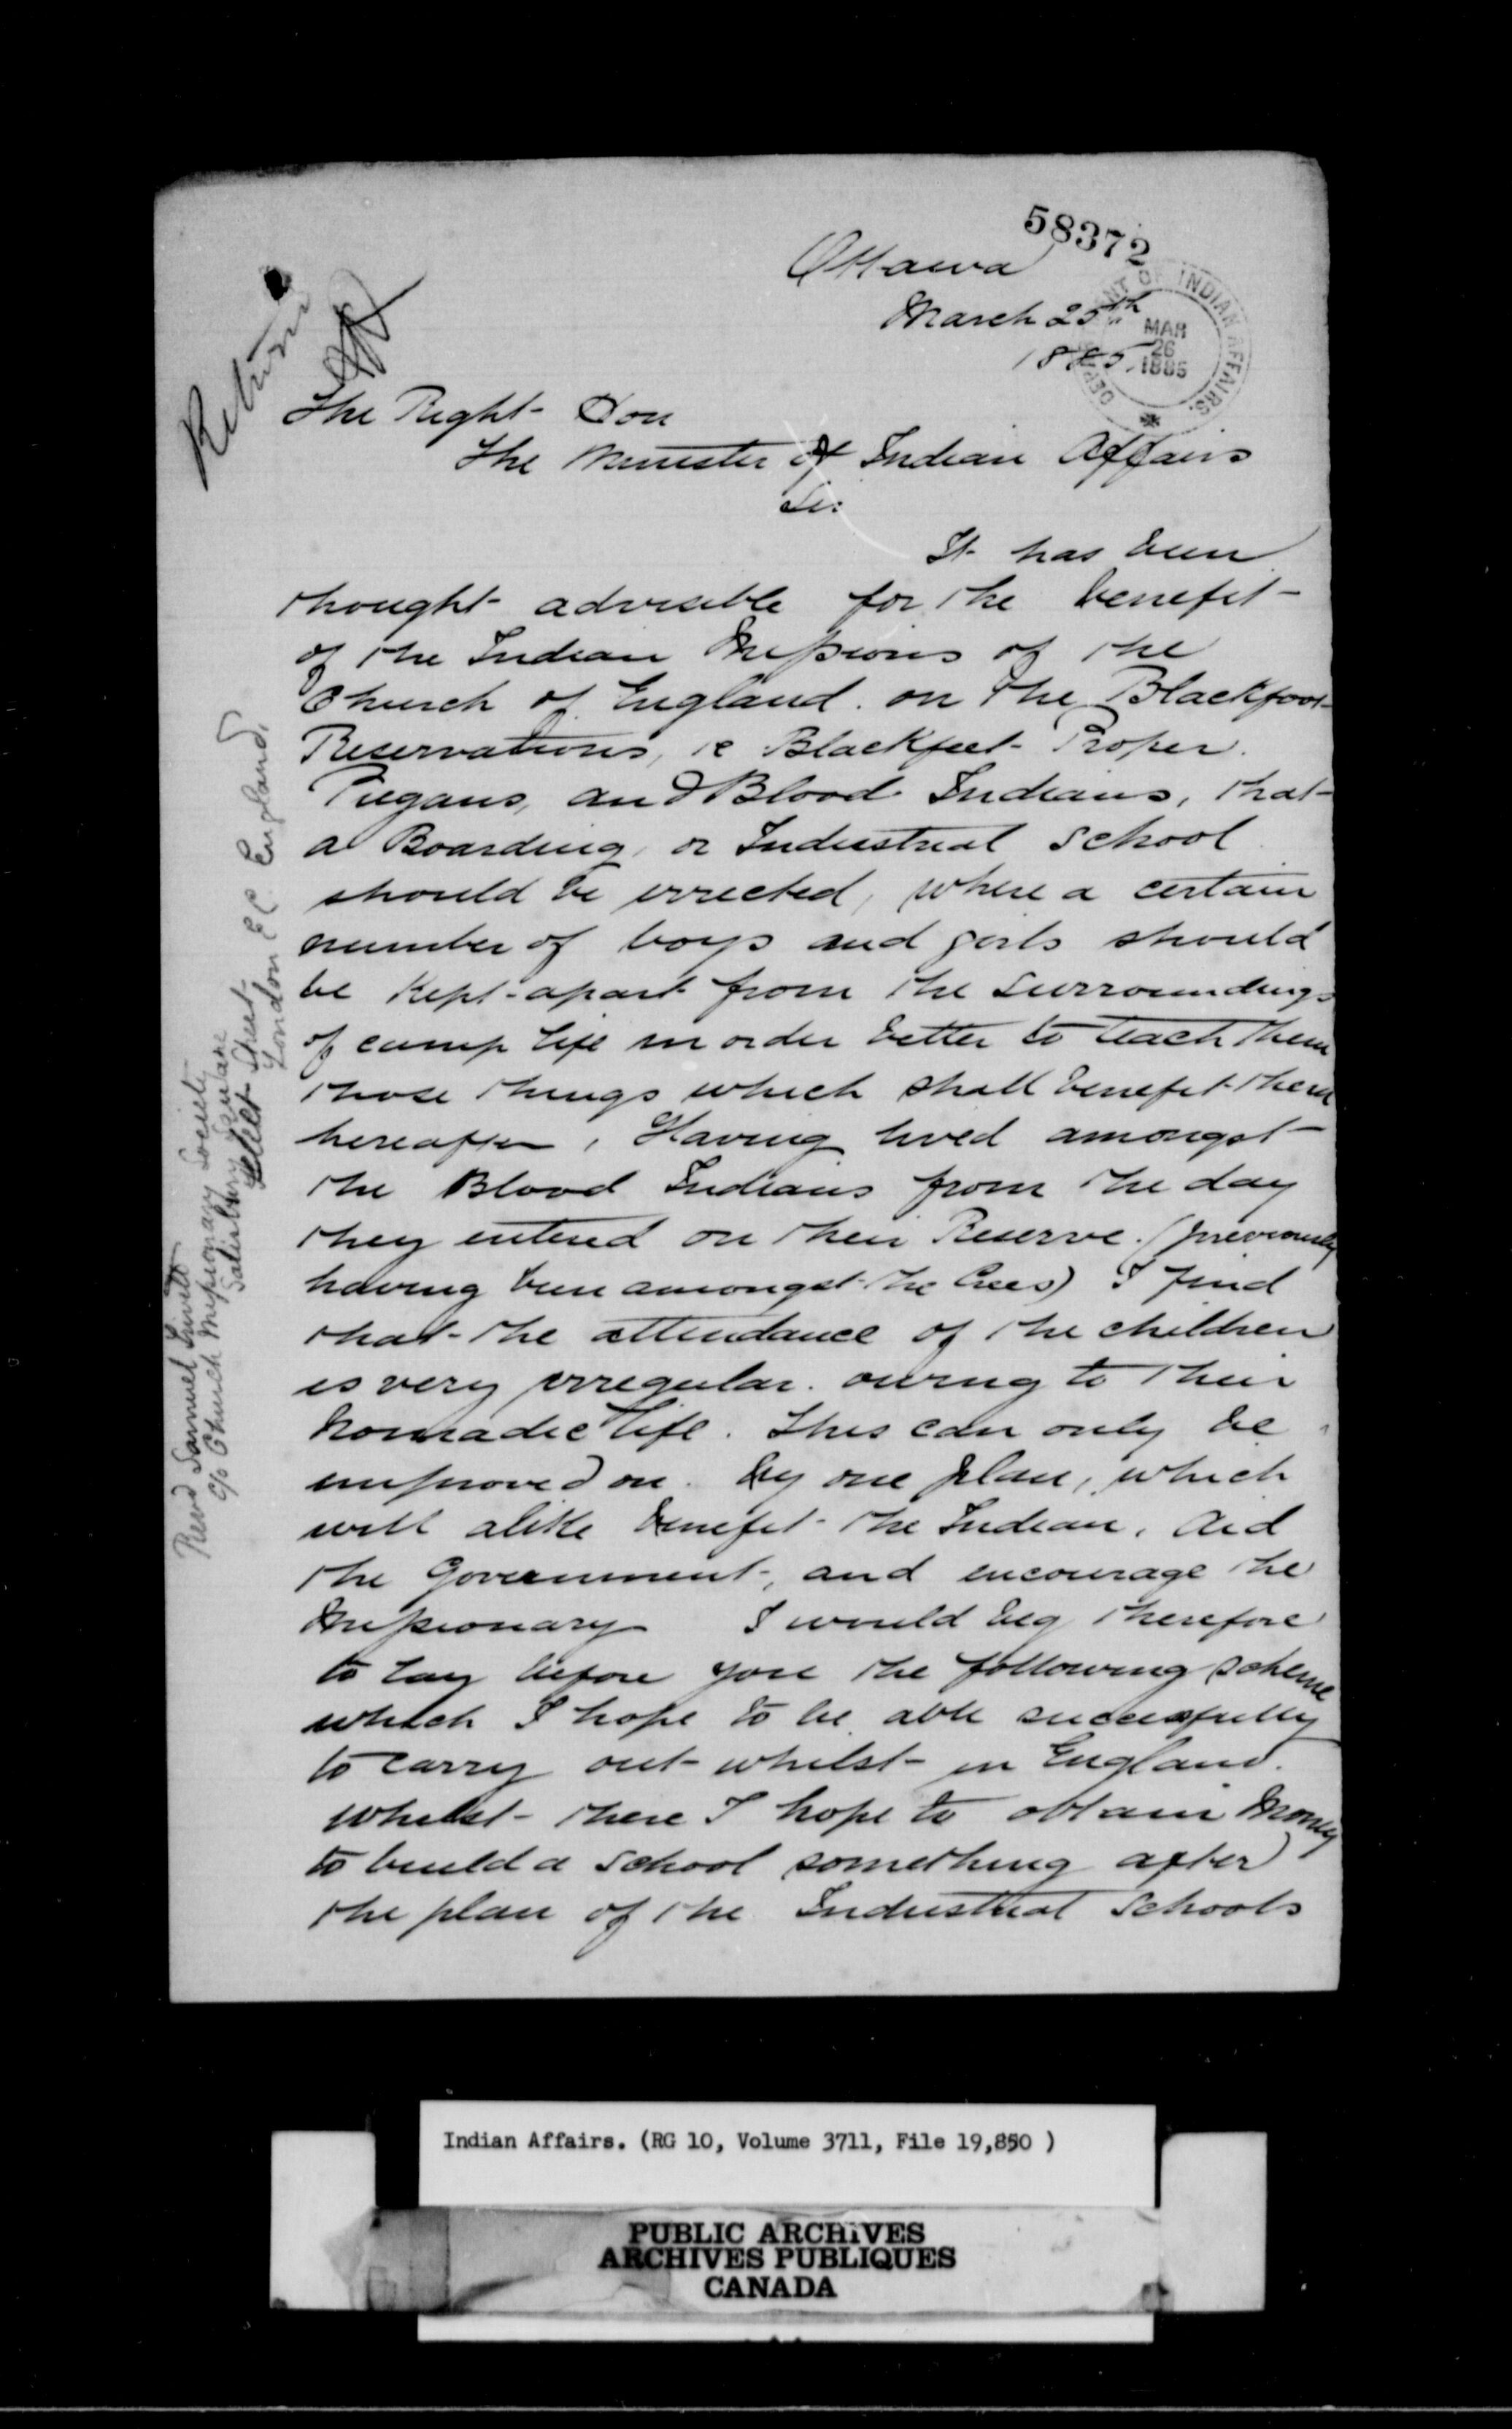 58372
Ottawa
March 25th
1885.
DEPARTMENT OF INDIAN AFFAIRS.
MAR
26
1885
Return
The Right Hon
The Minister of Indian Affairs
Sir
It has been
thought advisible for the benefit
of the Indian Missions of the
Church of England. on the Blackfoot
Reservations, ie Blackfeet Proper.
Piegans, and Blood Indians, that
a Boarding, or Industrial School
should be errected, where a certain
number of boys and girls should
be kept apart from the surroundings
of camp life in order better to teach them
those things which shall benefit them
hereafter, Having lived amongst
the Blood Indians from the day
they entered on their Reserve. (previously
having been amongst the Crees) I find
that the attendance of the children
is very irregular. owing to their
nomadic life. This can only be
improved on. by one plan, which
will alike benefit the Indian, Aid
the Government, and encourage the
Missionary I would beg therefore
to lay before you the following scheme
which I hope to be able successfully
to carry out whilst in England.
whilst there I hope to obtain money
to build a School something after
the plan of the Industrial Schools
Revd Samuel Trivett
c/o Church Missionary Society
Salisbury Square
Fleet Street
London EC England.
Indian Affairs. (RG 10, Volume 3711, File 19,850 )
PUBLIC ARCHIVES
ARCHIVES PUBLIQUES
CANADA